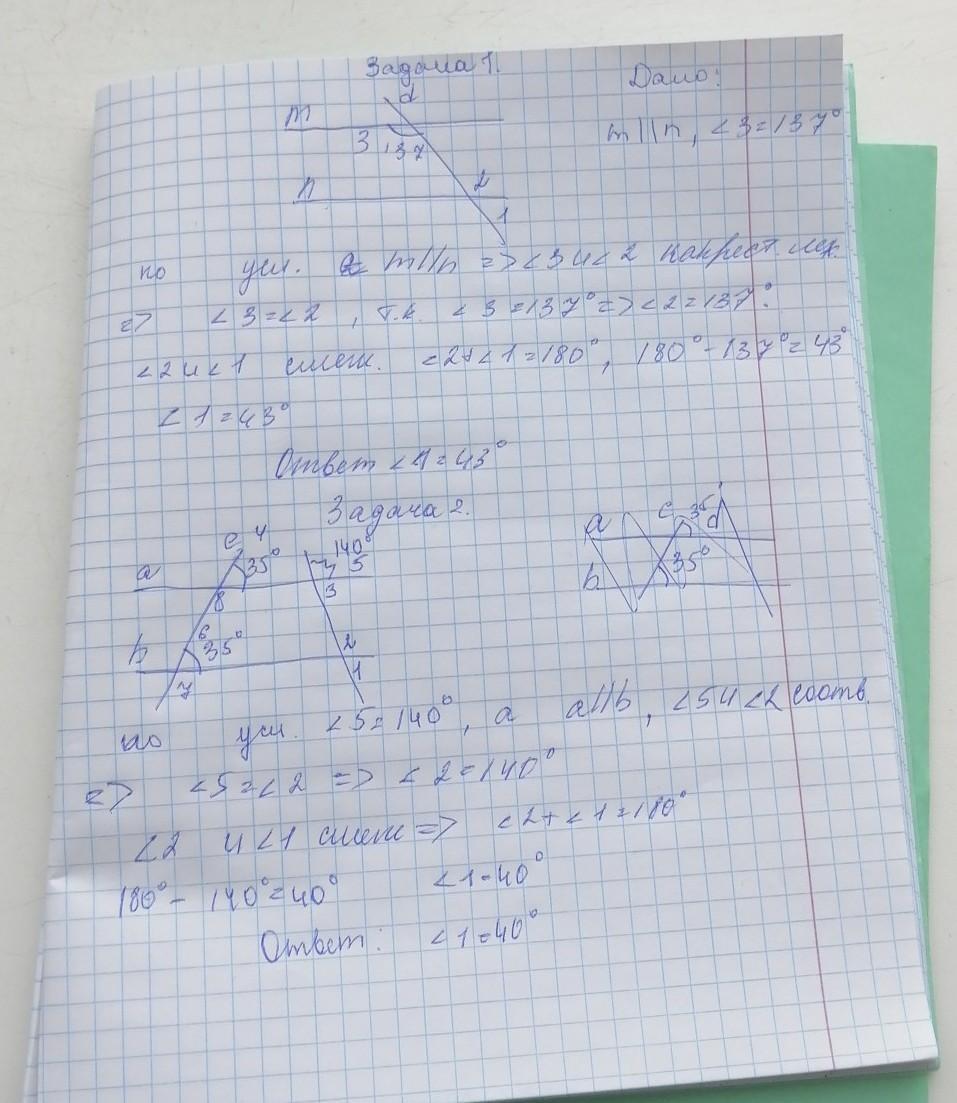 Задача 1.
Дано:
d
m
m || n, <3=137°
3 137
n
2
1
по усл. m||n => <3 и <2 накрест. леж.
=> <3=<2, т.к. <3=137° => <2=137°.
<2 и <1 смеж. <2+<1=180°, 180°-137°=43°
<1=43°
Ответ <1=43°
Задача 2.
c 4
35°
140°
5
a
8
3
b
6
35°
2
7
1
c 35
d
a
35°
b
по усл. <5=140°, а a||b, <5 и <2 соотв.
=> <5=<2 => <2=140°
<2 и <1 смеж => <2+<1=180°
180°-140°=40° <1=40°
Ответ: <1=40°